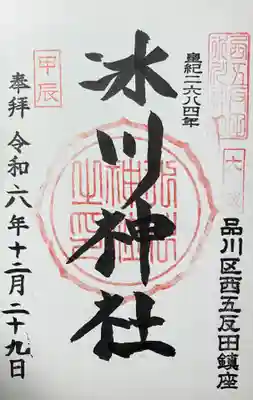 品川区西五反田鎮座
皇紀二六八四年
氷川神社
甲辰
奉拝
令和六年十二月二十九日